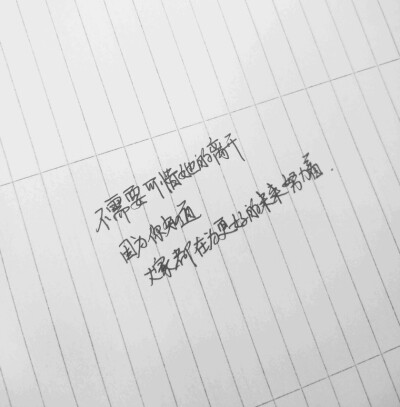 不需要可惜她的离开
因为你知道
大家都在为更好的未来努力着.